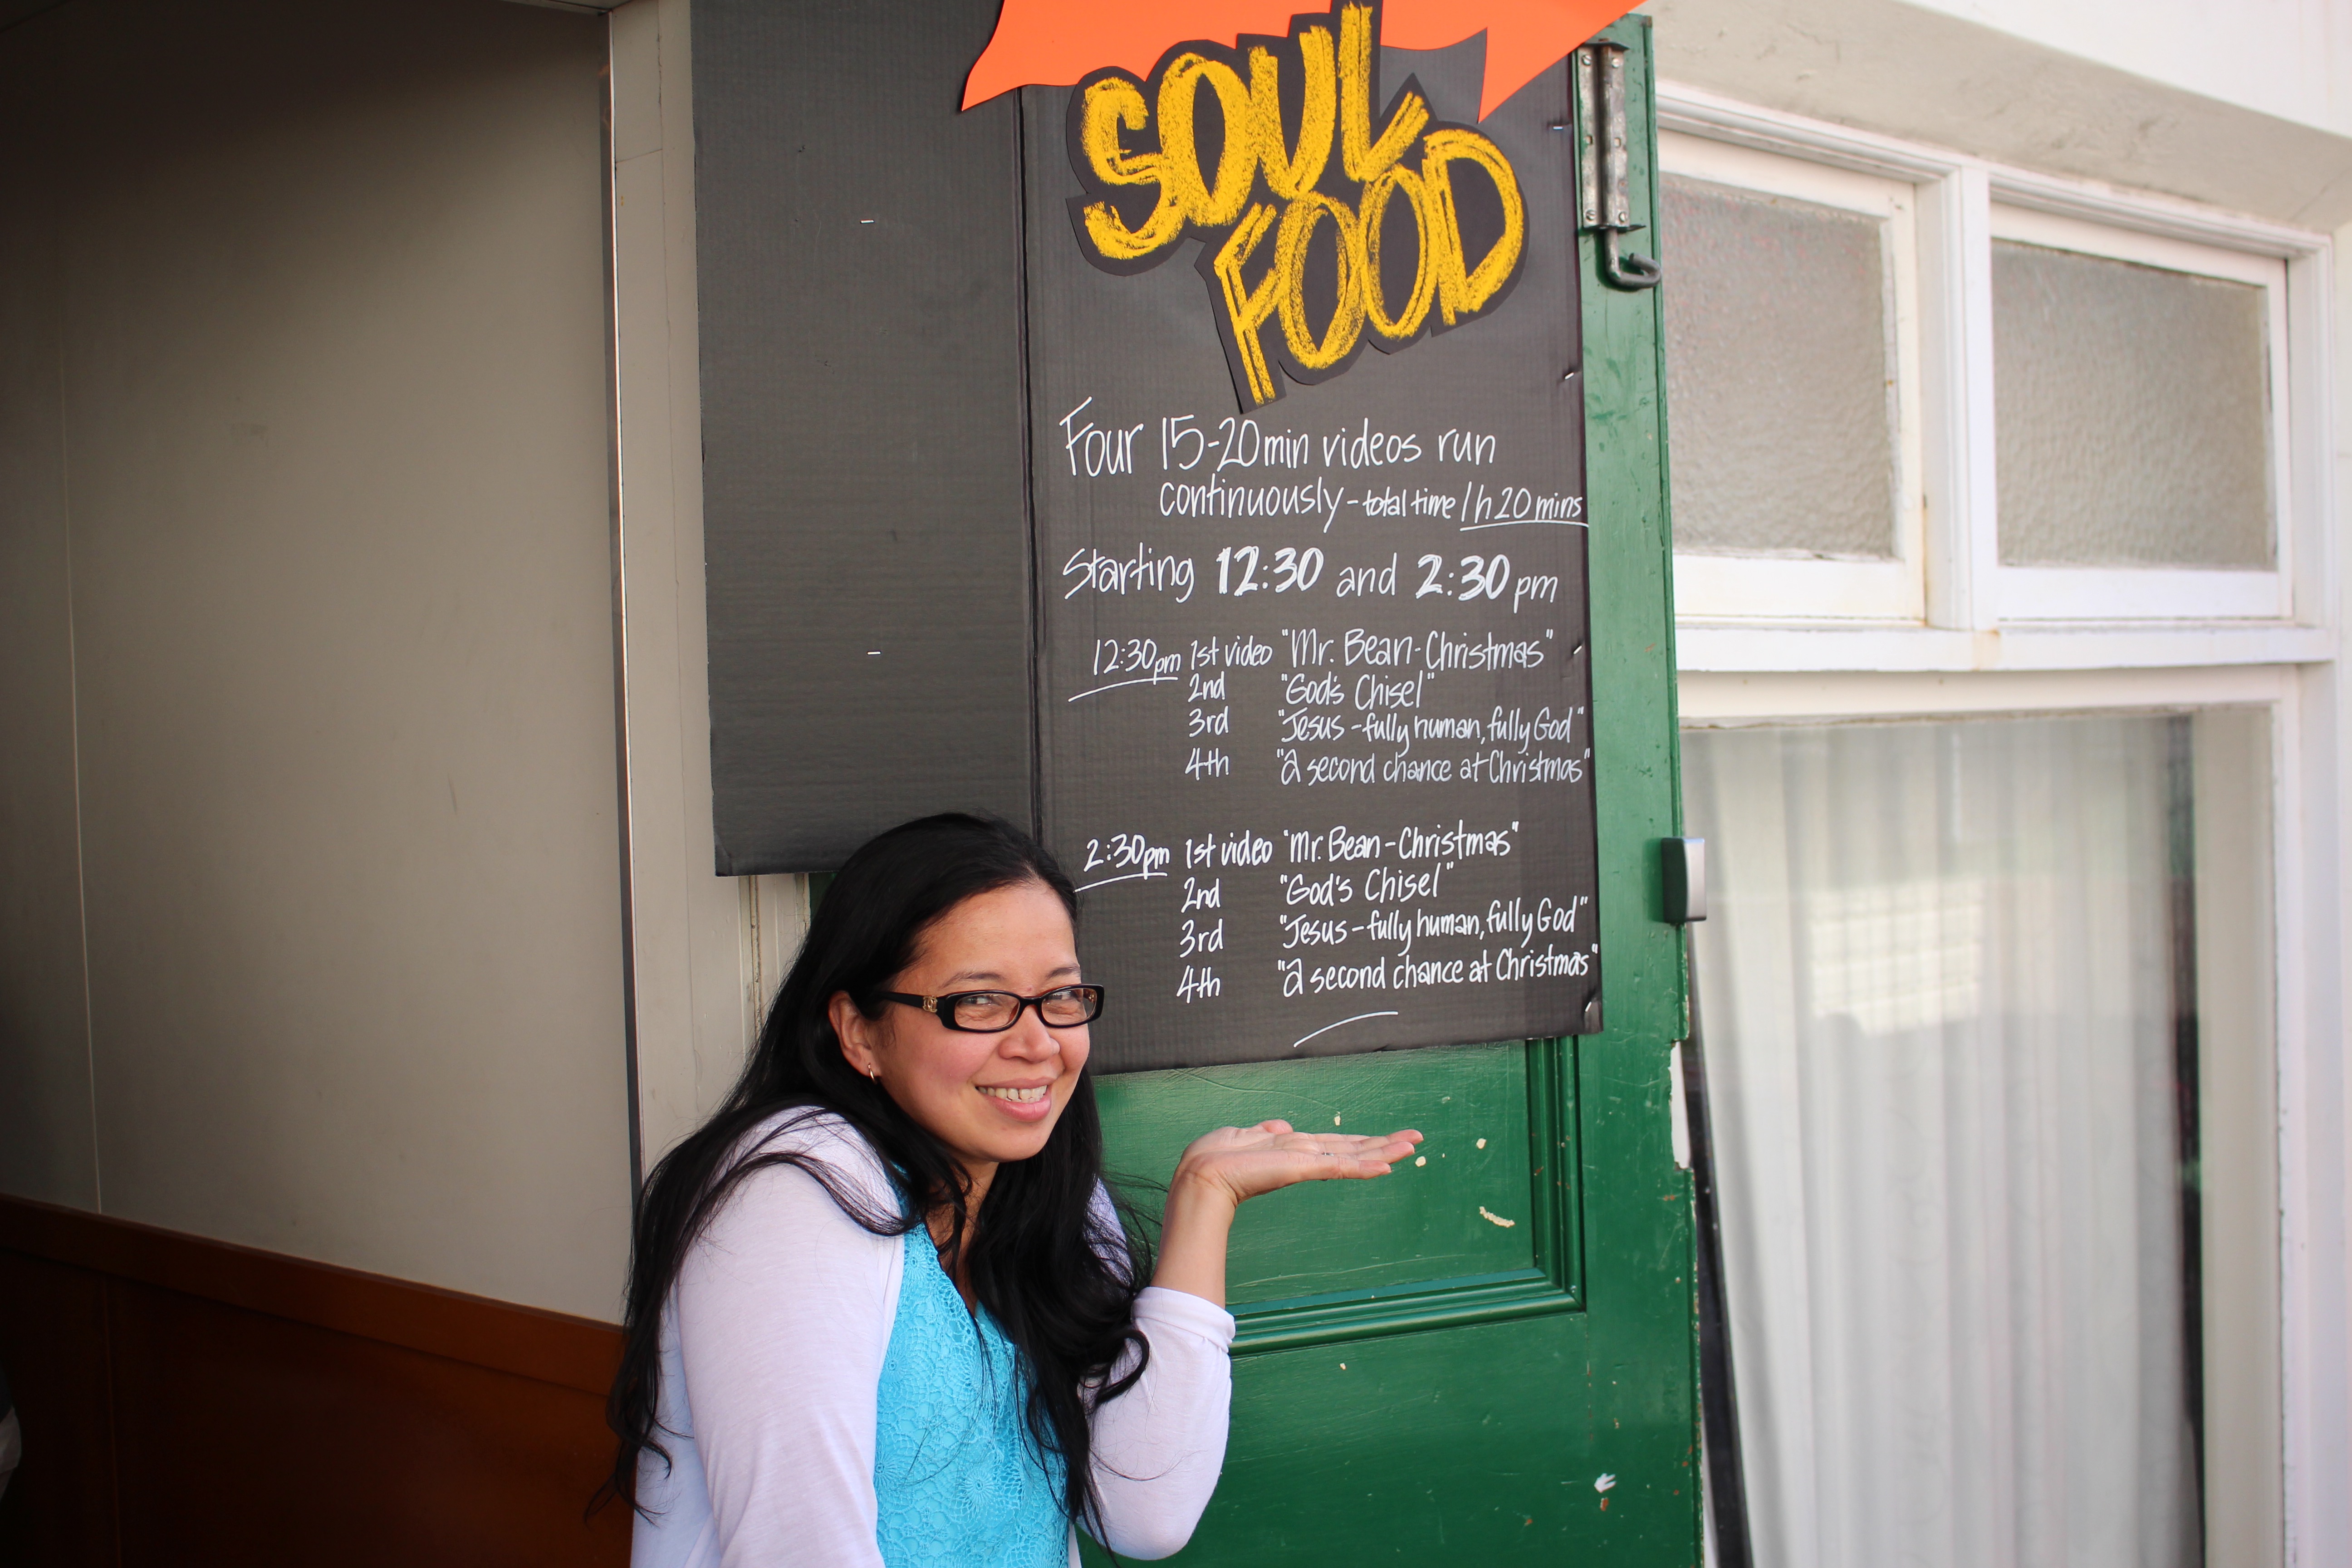 SOUL
FOOD
Four 15-20min videos run
continuously - total time 1h 20 mins
Starting 12:30 and 2:30 pm
12:30pm 1st video "Mr. Bean - Christmas"
2nd "God's Chisel"
3rd "Jesus - fully human, fully God"
4th "a second chance at Christmas"
2:30pm 1st video "Mr. Bean - Christmas"
2nd "God's Chisel"
3rd "Jesus - fully human, fully God"
4th "a second chance at Christmas"